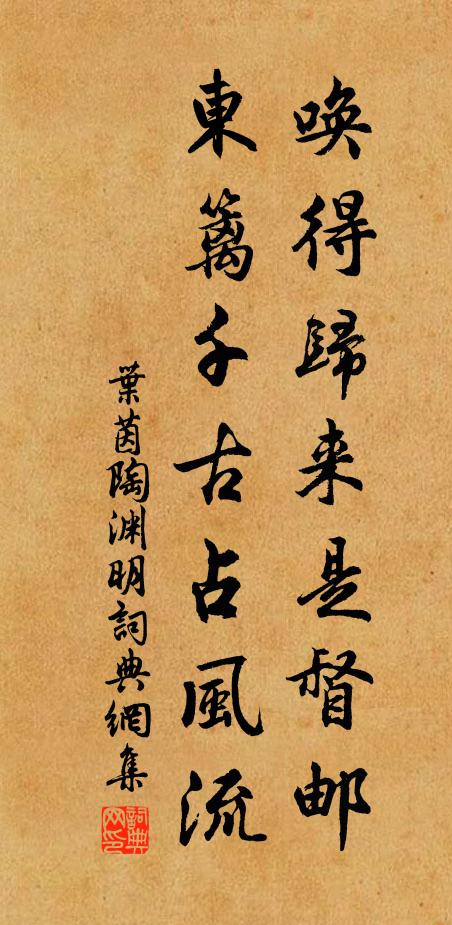 唤得歸来是督邮
東籬千古占風流
葉茵陶渊明詞典網集
詞典网印